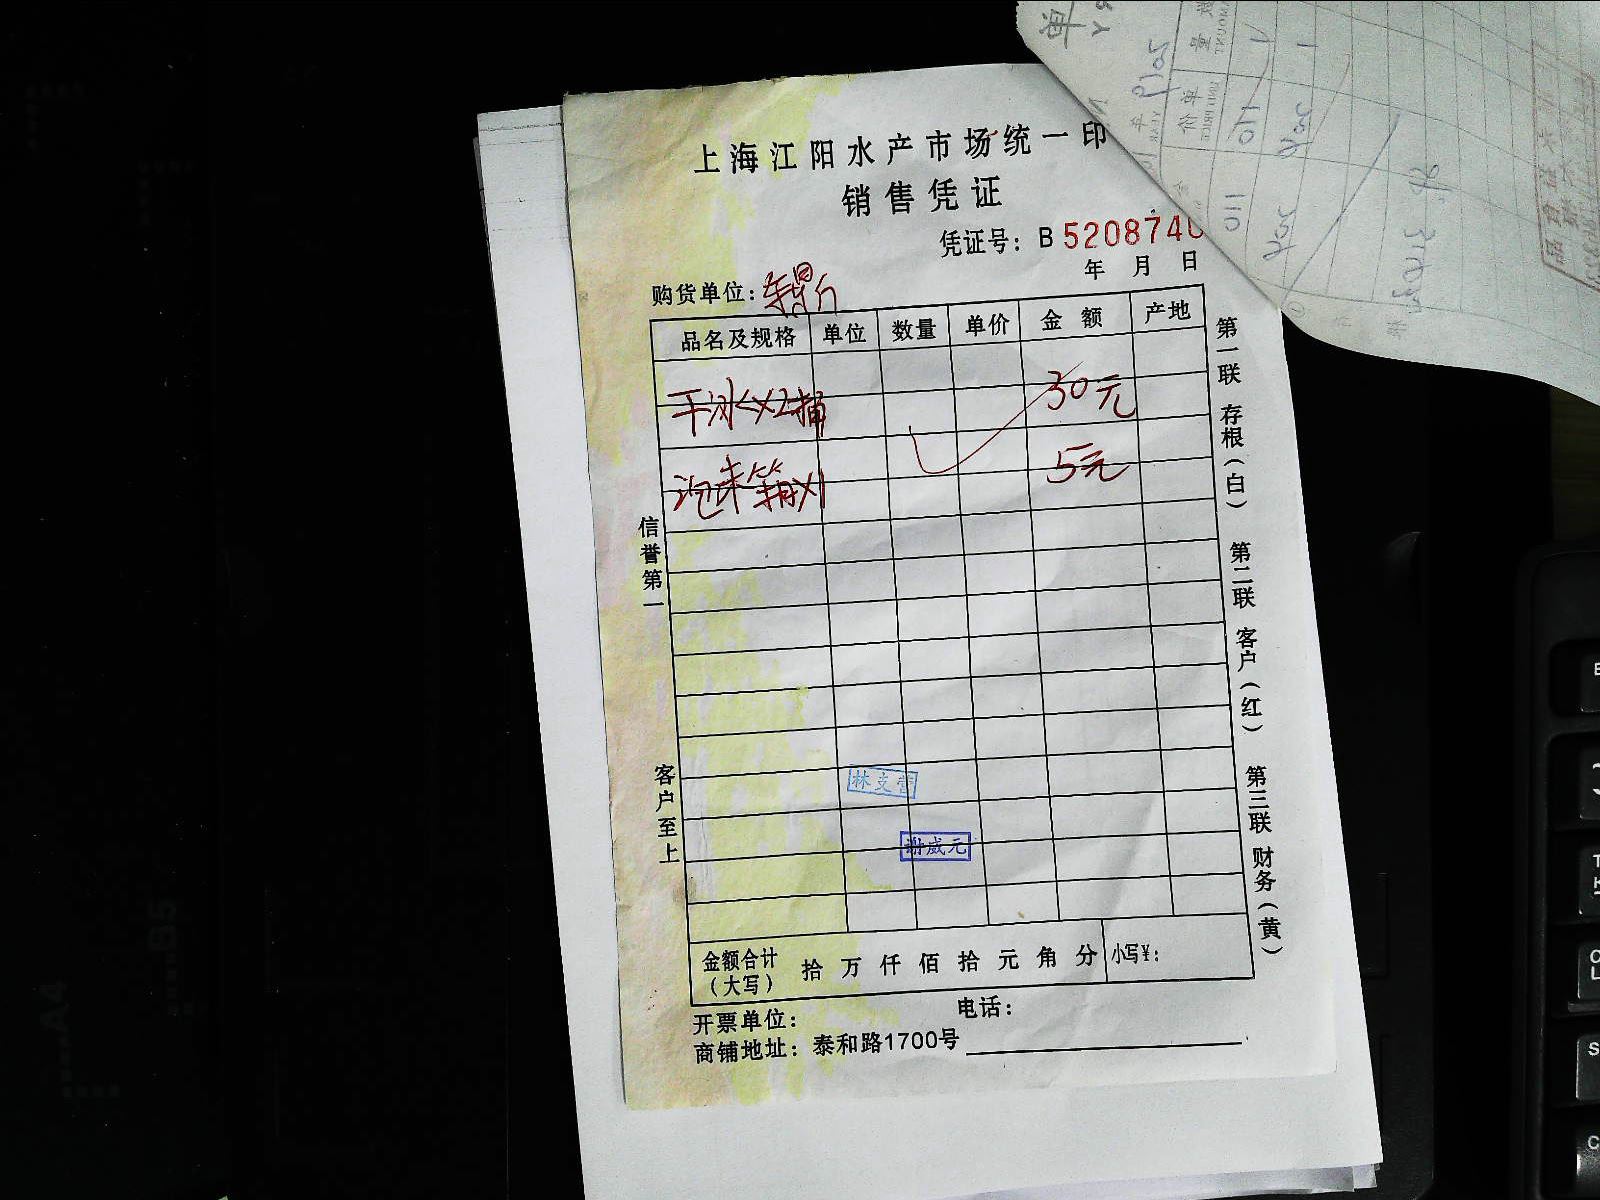 上海江阳水产市场统一印
销售凭证
凭证号: B 520874
年 月 日
购货单位:
品名及规格 单位 数量 单价 金额 产地
干冰×2桶 30元
泡沫箱×1 5元
信誉第一
客户至上
第一联 存根(白) 第二联 客户(红) 第三联 财务(黄)
林支营
谢威元
金额合计(大写) 拾 万 仟 佰 拾 元 角 分 小写¥:
开票单位: 电话:
商铺地址: 泰和路1700号
A4
B5